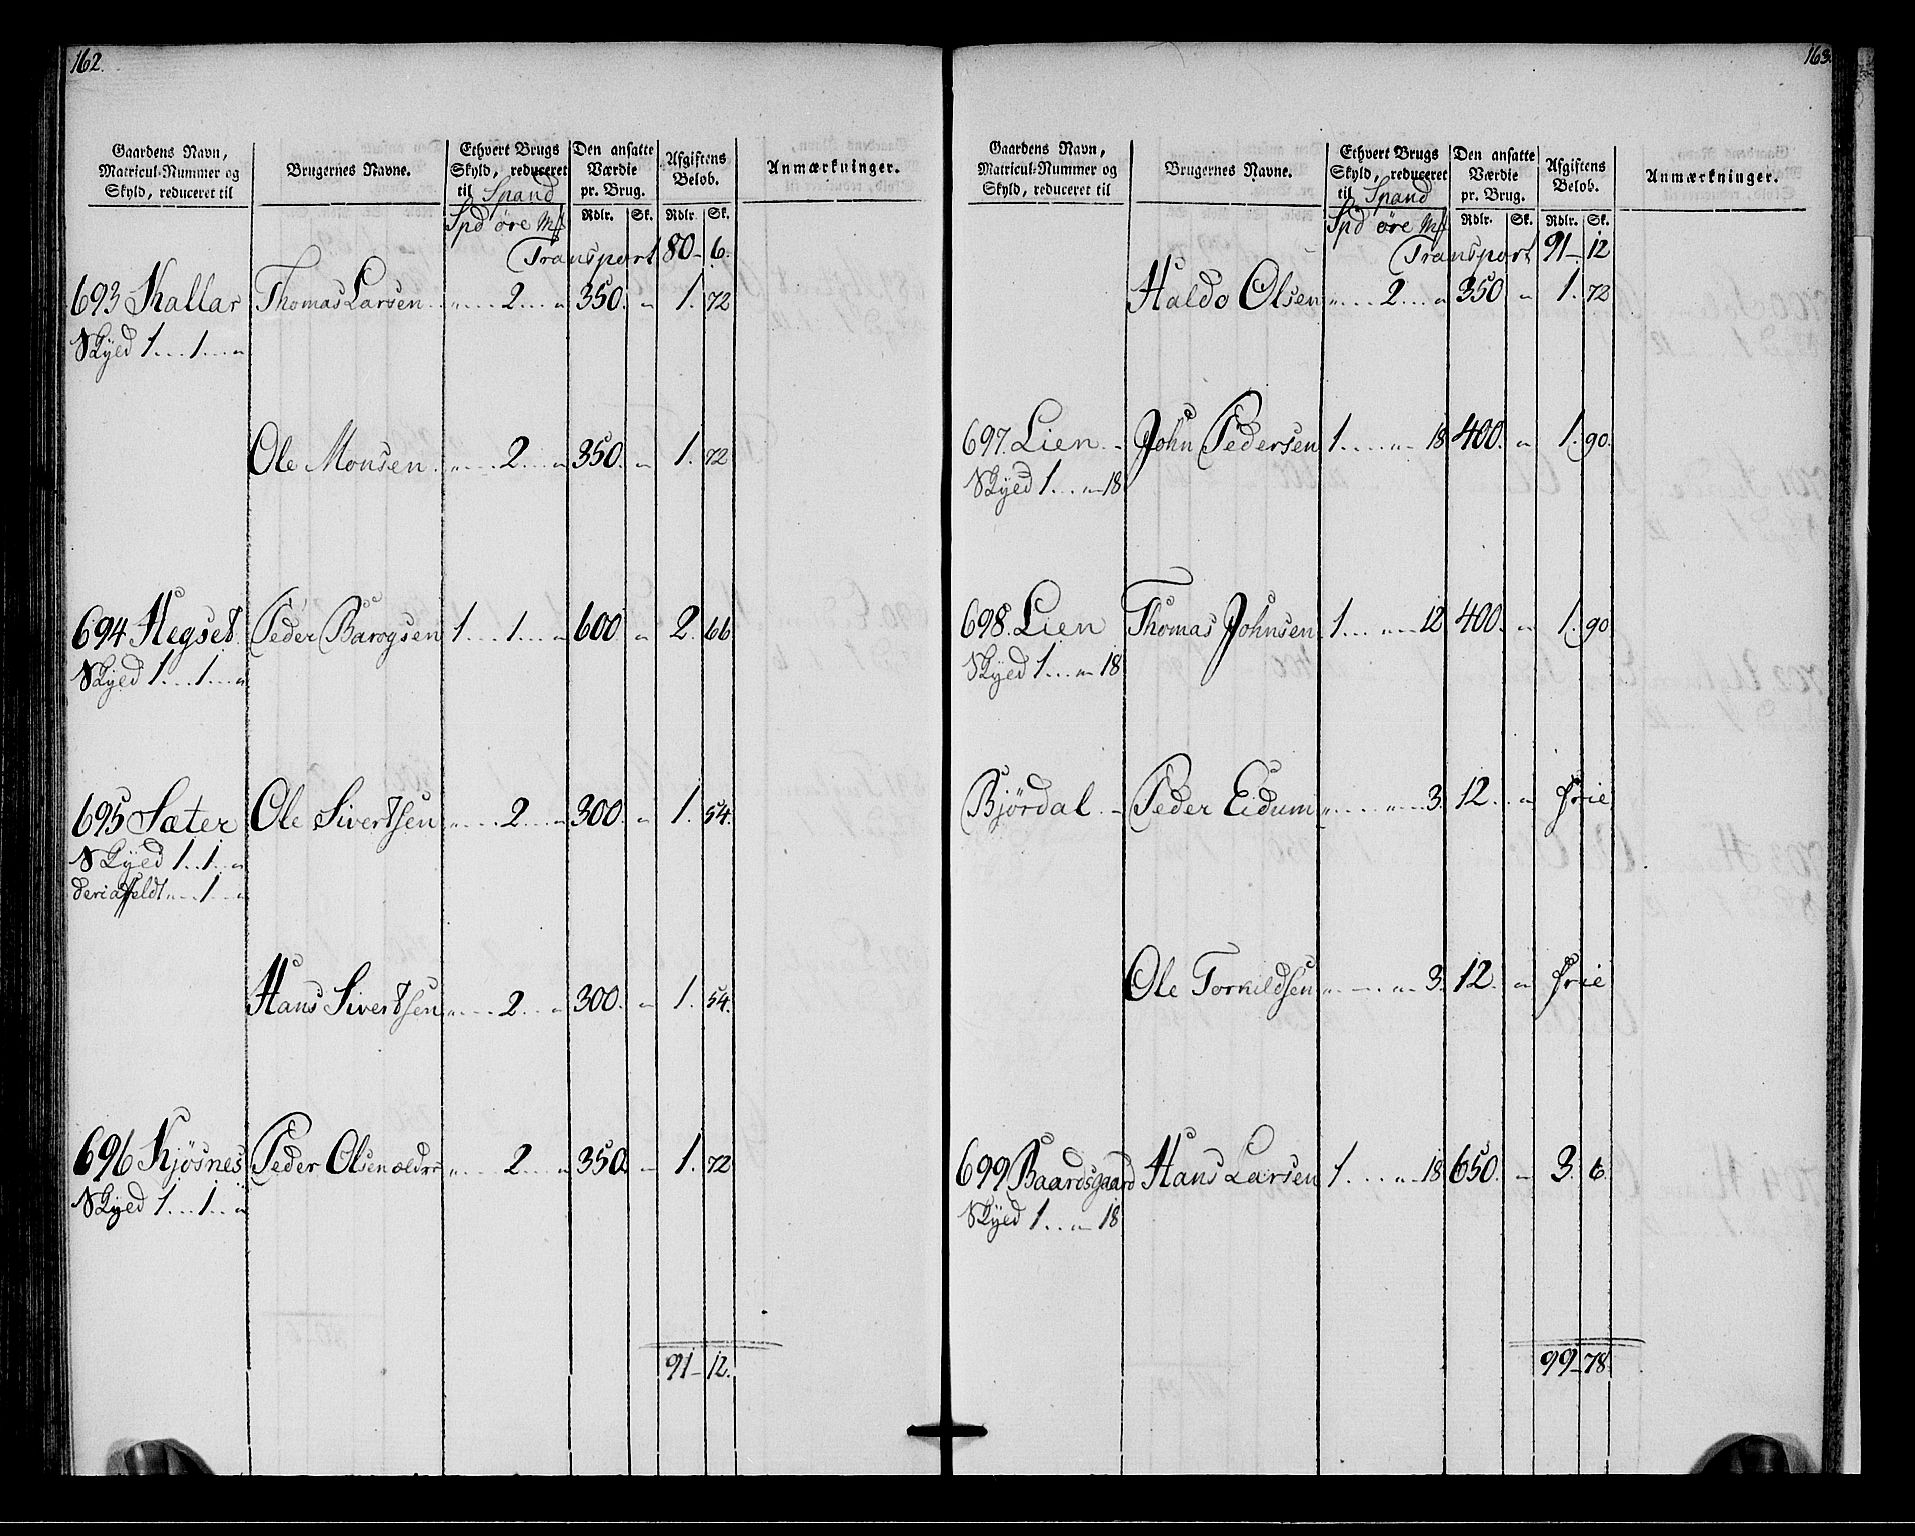 162.
Gaardens Navn, Matricul-Nummer og Skyld, reduceret til | Brugernes Navne. | Ethvert Brugs Skyld, reduceret til Spand | Den ansatte Værdie pr. Brug. | Afgiftens Beløb. | Anmærkninger.
Spd øre | Rdlr. | Sk. | Rdlr. | Sk.
Transport 80 – 6.
693 Kallar Thomas Larsen „ 2 „ 350. „ 1. 72
Skyed 1 . . 1 . . „
Ole Monsen „ 2 „ 350. „ 1. 72
694 Hegset Peder Baragsen 1 . . 1 . . „ 600 „ 2. 66
Skyed 1 . . 1 . . „
695 Sæter Ole Sivertsen „ 2 „ 300. „ 1. 54.
Skyed 1 . . 1 . . „
„ 1 „
Hans Sivertsen „ 2 „ 300. „ 1. 54.
696 Kjøsnes Peder Olsen ældre „ 2 „ 350. – 1. 72
Skyed 1 . . 1 . . „
91 – 12.
163.
Gaardens Navn, Matricul-Nummer og Skyld, reduceret til | Brugernes Navne. | Ethvert Brugs Skyld, reduceret til Spand | Den ansatte Værdie pr. Brug. | Afgiftens Beløb. | Anmærkninger.
Spd øre | Rdlr. | Sk. | Rdlr. | Sk.
Transport 91 – 12
Haldo Olsen „ 2 „ 350 „ 1. 72
697. Lien John Pedersen 1 . . „ 18 400. „ 1. 90.
Skyed 1 . . „ 18
698. Lien Thomas Johnsen 1 . . „ 12 400. „ 1. 90
Skyed 1 . . „ 18
Bjørdal Peder Eidum „ „ 3. 12. „ frie
Ole Torkildsen „ „ 3. 12. „ frie
699 Baardsgaard Hans Larsen 1 . . „ 18 650. „ 3. 6.
Skyed 1 . . „ 18
99 – 78.